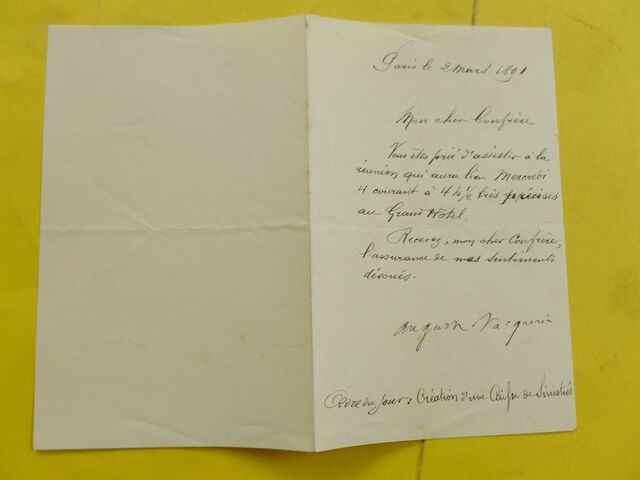 Paris le 2 Mars 1891
Mon cher Confrère
Vous êtes prié d'assister à la
réunion qui aura lieu Mercredi
4 courant à 4 h ½ très précises
au Grand Hôtel.
Recevez, mon cher Confrère,
l'assurance de mes sentiments
dévoués.
Auguste Vacquerie
Ordre du jour : Création d'une de Sinistrés